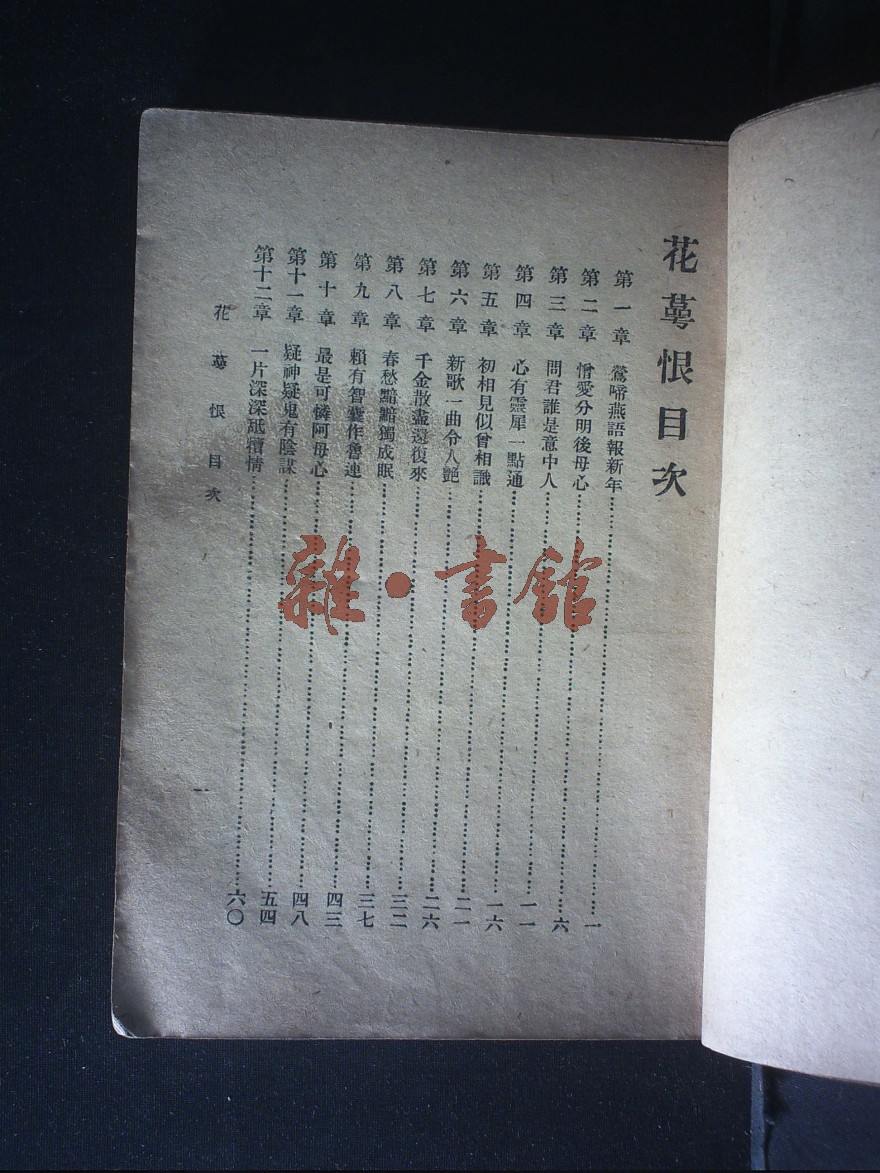 花萼恨目次
第一章 鶯啼燕語報新年 一
第二章 憎愛分明後母心 六
第三章 問君誰是意中人 一一
第四章 心有靈犀一點通 一六
第五章 初相見似曾相識 二一
第六章 新歌一曲令人艷 二六
第七章 千金散盡還復來 三二
第八章 春愁黯黯獨成眠 三七
第九章 賴有智囊作魯連 四三
第十章 最是可憐阿母心 四八
第十一章 疑神疑鬼有陰謀 五四
第十二章 一片深深舐犢情 六〇
花萼恨目次
雜·書館